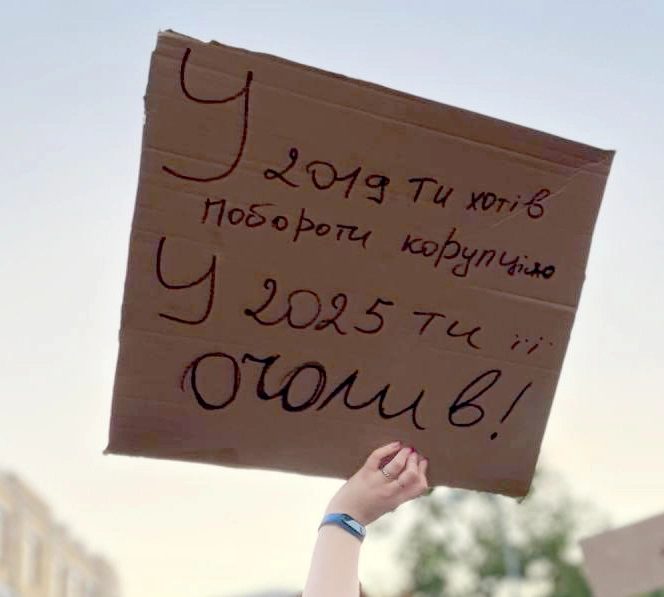 У 2019 ти хотів
побороти корупцію
У 2025 ти її
очолив!